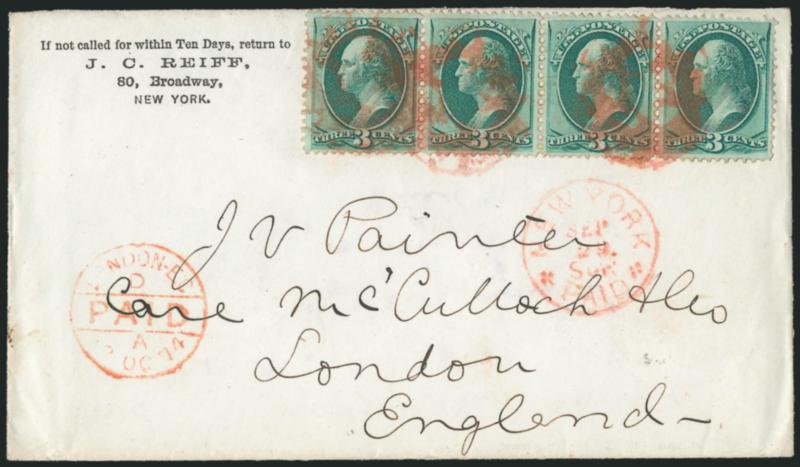 If not called for within Ten Days, return to
J. C. REIFF,
80, Broadway,
NEW YORK.
U.S. POSTAGE
THREE 3 CENTS
U.S. POSTAGE
THREE 3 CENTS
U.S. POSTAGE
THREE 3 CENTS
U.S. POSTAGE
THREE 3 CENTS
NEW YORK
SEP
PAID
J V Painter
Care McCulloch & Co
London
England
LONDON
PAID
A
OC 74